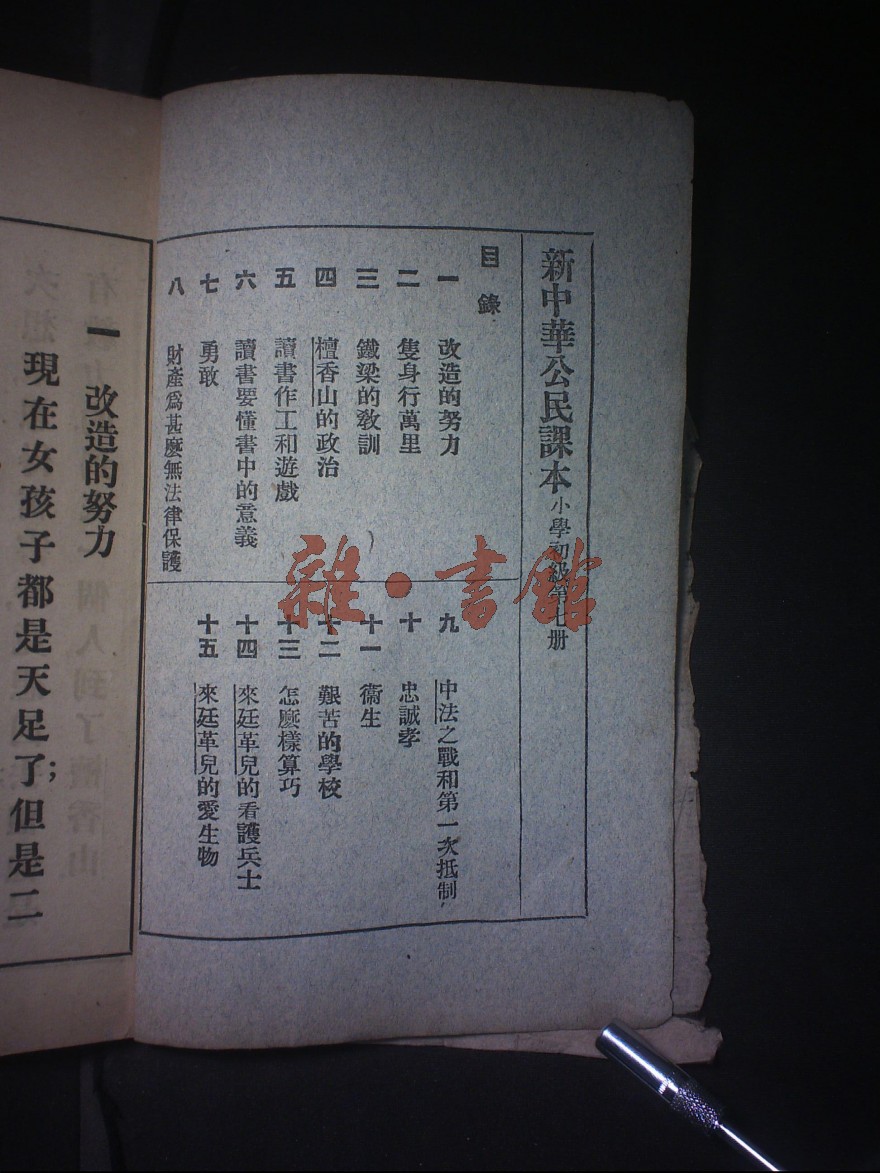 新中華公民課本 小學初級第七册
目錄
一 改造的努力
二 隻身行萬里
三 鐵梁的教訓
四 檀香山的政治
五 讀書作工和遊戲
六 讀書要懂書中的意義
七 勇敢
八 財產爲甚麼無法律保護
九 中法之戰和第一次抵制
十 忠誠孝
十一 衞生
十二 艱苦的學校
十三 怎麼樣算巧
十四 來廷革兒的看護兵士
十五 來廷革兒的愛生物
雜·書館
一 改造的努力
現在女孩子都是天足了；但是二